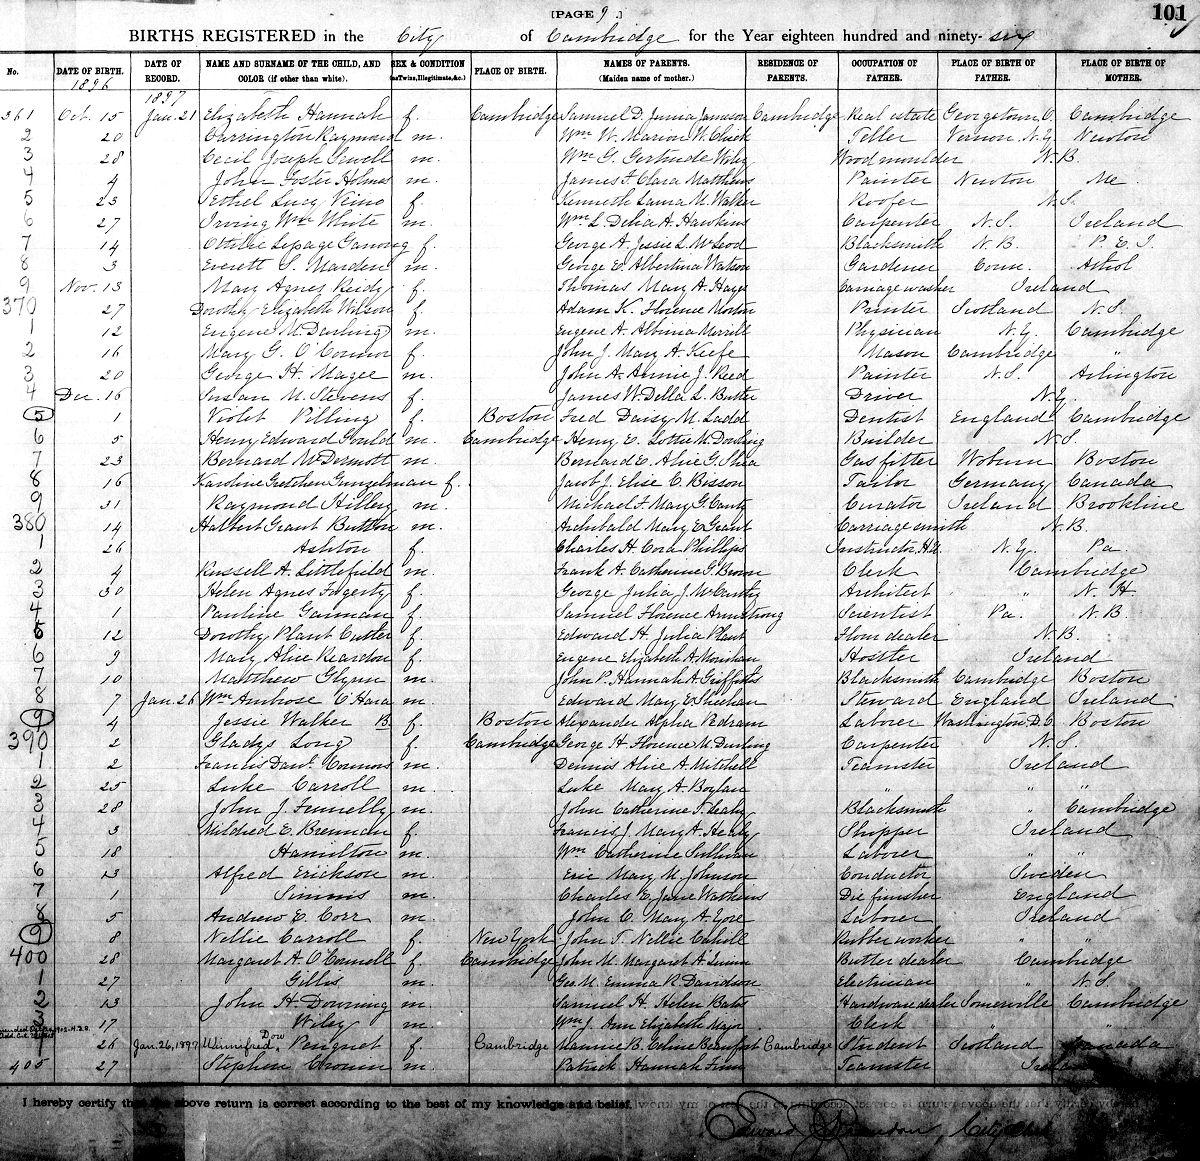 [PAGE 9.] 101
BIRTHS REGISTERED in the City of Cambridge for the Year eighteen hundred and ninety-six
No. DATE OF BIRTH. DATE OF RECORD. NAME AND SURNAME OF THE CHILD, AND COLOR (if other than white). SEX & CONDITION (as Twins, Illegitimate, &c.) PLACE OF BIRTH. NAMES OF PARENTS. (Maiden name of mother.) RESIDENCE OF PARENTS. OCCUPATION OF FATHER. PLACE OF BIRTH OF FATHER. PLACE OF BIRTH OF MOTHER.
1896 1897
361 Oct. 15 Jan. 21 Elizabeth Hannah f. Cambridge Samuel D. Junia Jameson Cambridge Real estate Georgetown Cambridge
2 20 Carrington Raymond m. Wm W. Marion W. Teller Vernon. N.Y. Newton
3 28 Cecil Joseph Sewell m. Wm G. Gertrude Wiley Woodmoulder N.B.
4 4 John Foster Holmes m. James F. Clara Matthews Painter Newton Me.
5 23 Ethel Lucy Veino f. Kenneth Laura M. Walker Roofer N.S.
6 27 Irving Wm White m. Wm L. Delia A. Hawkins Carpenter N.S. Ireland
7 14 Ottilie Lepage Ganong f. George A. Jessie L. McLeod Blacksmith N.B. P.E.I.
8 3 Everett S. Marden m. George E. Albertina Watson Gardener Conn. Athol
9 Nov. 13 Mary Agnes Reidy f. Thomas Mary A. Hayes Carriage washer Ireland
370 27 Dorothy Elizabeth Wilson f. Adam K. Florence Morton Painter Scotland N.S.
1 12 Eugene M. Darling m. Eugene A. Albina Merrill Physician N.Y. Cambridge
2 16 Mary G. O'Connor f. John J. Mary A. Keefe Mason Cambridge "
3 20 George H. Magee m. John A. Annie J. Reed Painter N.S. Arlington
4 Dec. 16 Susan M. Stevens f. James W. Della L. Butter Driver N.Y.
5 1 Violet Pilling f. Boston Fred Daisy M. Ladd Dentist England Cambridge
6 5 Henry Edward Gould m. Cambridge Henry E. Lottie M. Dowling Builder N.S.
7 23 Bernard McDermott m. Bernard E. Alice G. Shea Gasfitter Woburn Boston
8 16 Karoline Gretchen Gunzelman f. Jacob J. Elise C. Bisson Tailor Germany Canada
9 31 Raymond Hillery m. Michael F. Mary G. Canty Curator Ireland Brookline
380 14 Halbert Grant m. Archibald Mary E. Grant Carriage smith N.B.
1 26 Ashton f. Charles H. Cora Phillips Instructor H.U. N.Y. Pa.
2 4 Russell A. Littlefield m. Frank A. Catherine G. Brown Clerk Cambridge
3 30 Helen Agnes Fogerty f. George Julia J. McCarthy Architect " N.H.
4 1 Pauline Garman f. Samuel Florence Armstrong Scientist Pa. N.B.
5 12 Dorothy Plant Cutter f. Edward H. Julia Plant Flour dealer N.B.
6 9 Mary Alice Reardon f. Eugene Elizabeth A. Monihan Hostler Ireland
7 10 Matthew Glynn m. John P. Hannah A. Griffiths Blacksmith Cambridge Boston
8 7 Jan. 26 Wm Ambrose O'Hara m. Edward Mary E. Sheehan Steward England Ireland
9 4 Jessie Walker B f. Boston Alexander Alpha Pedram Laborer Washington D.C. Boston
390 2 Gladys Long f. Cambridge George H. Florence M. Durling Carpenter N.S.
1 2 Francis Danl. Connors m. Dennis Alice A. Mitchell Teamster Ireland
2 25 Luke Carroll m. Luke Mary A. Boylan " " "
3 28 John J. Funnelly m. John Catherine T. Leahy Blacksmith " Cambridge
4 3 Mildred E. Brennan f. Francis J. Mary A. Healy Shipper Ireland
5 18 Hamilton m. Wm. Catherine Sullivan Laborer " "
6 13 Alfred Erickson m. Eric Mary M. Johnson Conductor Sweden
7 1 Simms m. Charles E. Jane Watkins Die finisher England
8 5 Andrew E. Corr m. John C. Mary A. Laborer Ireland
9 8 Nellie Carroll f. New York John T. Nellie Cahill Rubber worker " "
400 28 Margaret A. O'Connell f. Cambridge John M. Margaret A. Quinn Butter dealer Cambridge
1 27 Gillis m. Geo. M. Emma R. Davidson Electrician " N.S.
2 13 John H. Downing m. Samuel H. Helen Bates Hardware dealer Somerville Cambridge
3 17 Wiley m. Wm. J. Ann Elizabeth Major Clerk " "
26 Jan. 26, 1897 Winnifred Dow Penguet f. Cambridge Nannie B. Beaufort Cambridge Student Scotland Canada
405 27 Stephen Cronin m. Patrick Hannah Finn Teamster Ireland
I hereby certify that the above return is correct according to the best of my knowledge and belief.
Edward J. Brandon, City Clerk